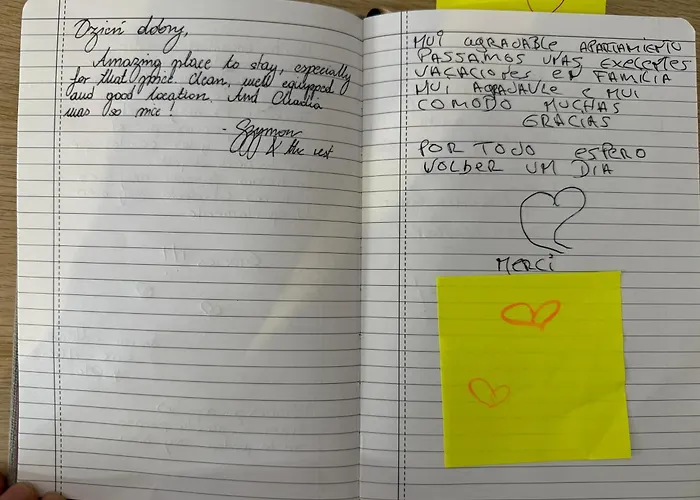 Dzień dobry,
Amazing place to stay, especially
for that price. Clean, well equipped
and good location. And Claudia
was so nice!
- Szymon
& the rest
MUI AGRADABLE APARTAMIENTO
PASSAMOS UNAS EXELENTES
VACACIONES EN FAMILIA
MUI AGRADAVLE E MUI
COMODO MUCHAS
GRACIAS
POR TODO ESPERO
VOLBER UM DIA
MERCI